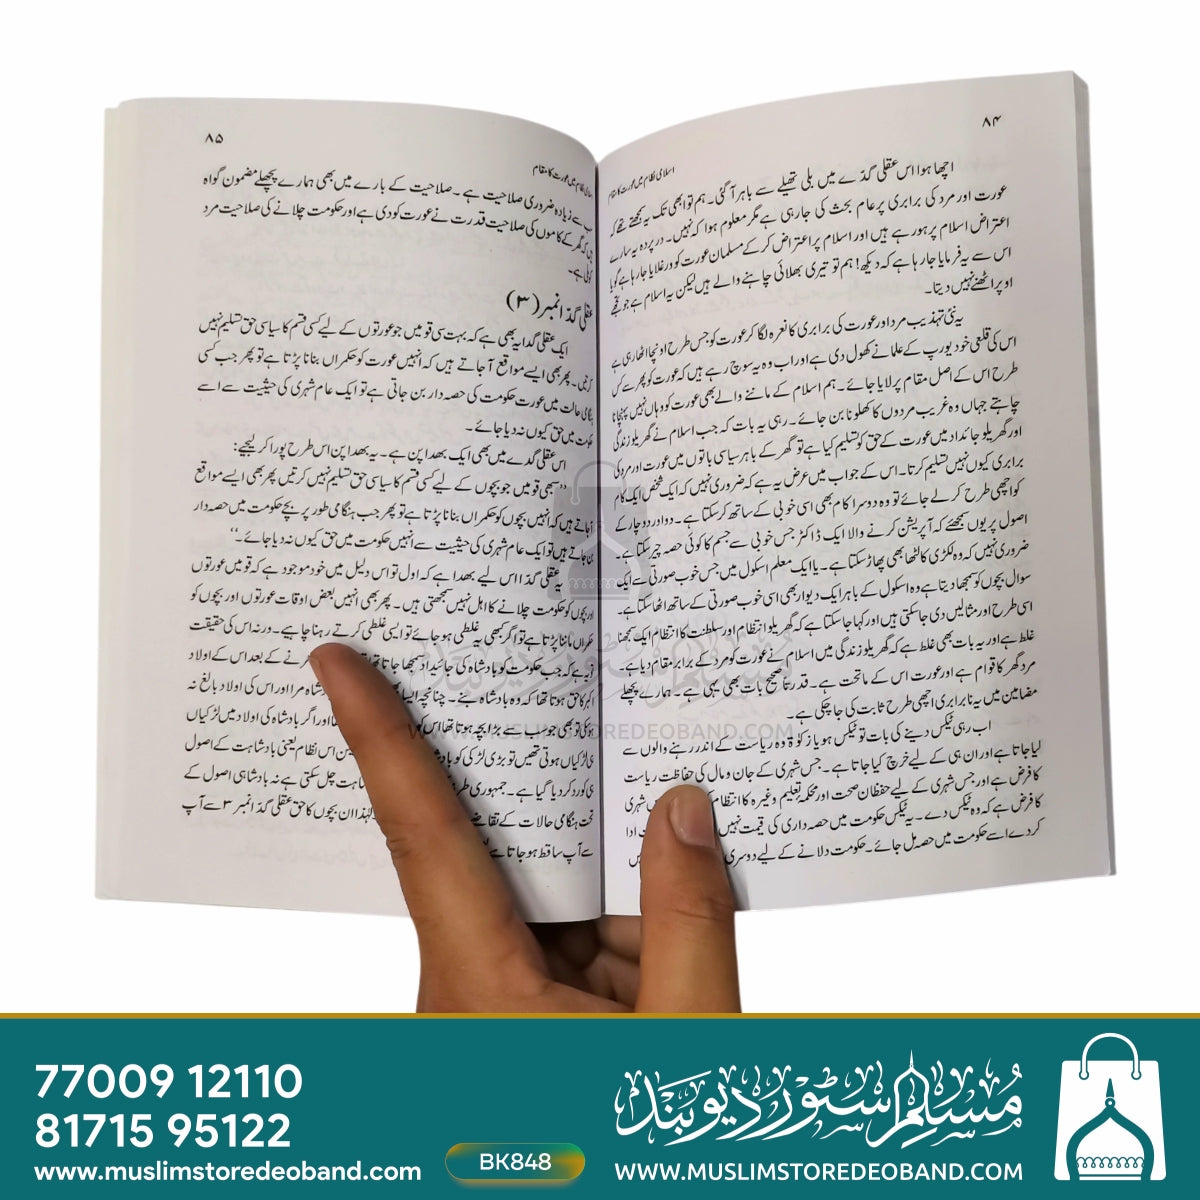 ۸۴
اسلامی نظام میں عورت کا مقام
اچھا ہوا اس عقلی گدّے میں بلی تھیلے سے باہر آ گئی۔ ہم تو ابھی تک یہ سمجھتے تھے کہ
عورت اور مرد کی برابری پر عام بحث کی جا رہی ہے مگر معلوم ہوا کہ نہیں۔ در پردہ یہ سارے
اعتراض اسلام پر ہو رہے ہیں اور اسلام پر اعتراض کر کے مسلمان عورت کو ورغلایا جا رہا ہے گویا
اس سے یہ فرمایا جا رہا ہے کہ دیکھ! ہم تو تیری بھلائی چاہنے والے ہیں لیکن یہ اسلام ہے جو تجھے
اوپر اٹھنے نہیں دیتا۔
یہ نئی تہذیب مرد اور عورت کی برابری کا نعرہ لگا کر عورت کو جس طرح اونچا اٹھا رہی ہے
اس کی قلعی خود یورپ کے علما نے کھول دی ہے اور اب وہ یہ سوچ رہے ہیں کہ عورت کو پھر سے کس
طرح اس کے اصل مقام پر لایا جائے۔ ہم اسلام کے ماننے والے بھی عورت کو وہاں نہیں پہنچانا
چاہتے جہاں وہ غریب مردوں کا کھلونا بن جائے۔ رہی یہ بات کہ جب اسلام نے گھریلو زندگی
اور گھریلو جائداد میں عورت کے حق کو تسلیم کیا ہے تو گھر کے باہر سیاسی باتوں میں عورت اور مرد کی
برابری کیوں نہیں تسلیم کرتا۔ اس کے جواب میں عرض یہ ہے کہ ضروری نہیں کہ ایک شخص ایک کام
کو اچھی طرح کر لے جائے تو وہ دوسرا کام بھی اسی خوبی کے ساتھ کر سکتا ہے۔ دو اور دو چار کے
اصول پر یوں سمجھئے کہ آپریشن کرنے والا ایک ڈاکٹر جس خوبی سے جسم کا کوئی حصہ چیر سکتا ہے۔
ضروری نہیں کہ وہ لکڑی کا لٹھا بھی پھاڑ سکتا ہے۔ یا ایک معلم اسکول میں جس خوب صورتی سے ایک
سوال بچوں کو سمجھا دیتا ہے وہ اسکول کے باہر ایک دیوار بھی اسی خوب صورتی کے ساتھ اٹھا سکتا ہے۔
اسی طرح اور مثالیں دی جا سکتی ہیں اور کہا جا سکتا ہے کہ گھریلو انتظام اور سلطنت کا انتظام ایک سمجھنا
غلط ہے اور یہ بات بھی غلط ہے کہ گھریلو زندگی میں اسلام نے عورت کو مرد کے برابر مقام دیا ہے۔
مرد گھر کا قوام ہے اور عورت اس کے ماتحت ہے۔ قدرتاً صحیح بات بھی یہی ہے۔ ہمارے پچھلے
مضامین میں یہ نا برابری اچھی طرح ثابت کی جا چکی ہے۔
اب رہی ٹیکس دینے کی بات تو ٹیکس ہو یا زکوٰۃ وہ ریاست کے اندر رہنے والوں سے
لیا جاتا ہے اور ان ہی کے لیے خرچ کیا جاتا ہے۔ جس شہری کے جان و مال کی حفاظت ریاست
کا فرض ہے اور جس شہری کے لیے حفظان صحت اور محکمہ تعلیم وغیرہ کا انتظام شہری
کا فرض ہے کہ وہ ٹیکس دے۔ یہ ٹیکس حکومت میں حصہ داری کی قیمت نہیں ادا
کر دے اسے حکومت میں حصہ مل جائے۔ حکومت دلانے کے لیے دوسری میں
۸۵
اسلامی نظام میں عورت کا مقام
سب سے زیادہ ضروری صلاحیت ہے۔ صلاحیت کے بارے میں بھی ہمارے پچھلے مضمون گواہ
ہیں کہ گھر کے کاموں کی صلاحیت قدرت نے عورت کو دی ہے اور حکومت چلانے کی صلاحیت مرد
کو لی ہے۔
عقلی گدّا نمبر (۳)
ایک عقلی گدا یہ بھی ہے کہ بہت سی قومیں جو عورتوں کے لیے کسی قسم کا سیاسی حق تسلیم نہیں
کرتیں۔ پھر بھی ایسے مواقع آ جاتے ہیں کہ انہیں عورت کو حکمراں بنانا پڑتا ہے تو پھر جب کسی
ہنگامی حالت میں عورت حکومت کی حصہ دار بن جاتی ہے تو ایک عام شہری کی حیثیت سے اسے
حکومت میں حق کیوں نہ دیا جائے۔
اس عقلی گدے میں بھی ایک بھدا پن ہے۔ یہ بھدا پن اس طرح پورا کر لیجیے:
”سبھی قومیں جو بچوں کے لیے کسی قسم کا سیاسی حق تسلیم نہیں کرتیں پھر بھی ایسے مواقع
آ جاتے ہیں کہ انہیں بچوں کو حکمراں بنانا پڑتا ہے تو پھر جب ہنگامی طور پر بچے حکومت میں حصہ دار
بن جاتے ہیں تو ایک عام شہری کی حیثیت سے انہیں حکومت میں حق کیوں نہ دیا جائے۔“
یہ عقلی گدا اس لیے بھدا ہے کہ اول تو اس دلیل میں خود موجود ہے کہ قومیں عورتوں
اور بچوں کو حکومت چلانے کا اہل نہیں سمجھتی ہیں۔ پھر بھی انہیں بعض اوقات عورتوں اور بچوں کو
حکمراں ماننا پڑتا ہے تو اگر کبھی یہ غلطی ہو جائے تو ایسی غلطی کرتے رہنا چاہیے۔ ورنہ اس کی حقیقت
یہ ہے کہ جب حکومت کو بادشاہ کی جائیداد سمجھا جاتا تھا مرنے کے بعد اس کے اولاد
اکبر کا حق ہوتا تھا کہ وہ بادشاہ بنے۔ چنانچہ ایسا بادشاہ مرا اور اس کی اولاد بالغ نہ
ہوئی تو بھی جو سب سے بڑا بچہ ہوتا تھا اس کو اور اگر بادشاہ کی اولاد میں لڑکیاں
ہی لڑکیاں ہوتی تھیں تو بڑی لڑکی کو بادشاہ اس نظام یعنی بادشاہت کے اصول
ہی کو رد کر دیا گیا ہے۔ جمہوری طرز چل سکتی ہے نہ بادشاہی اصول کے
تحت ہنگامی حالات کے تقاضے لہٰذا ان بچوں کا حق عقلی گدا نمبر ۳ سے آپ
سے آپ ساقط ہو جاتا ہے
مسلم سٹور دیوبند
WWW.MUSLIMSTOREDEOBAND.COM
77009 12110
81715 95122
www.muslimstoredeoband.com
BK848
مسلم سٹور دیوبند
WWW.MUSLIMSTOREDEOBAND.COM